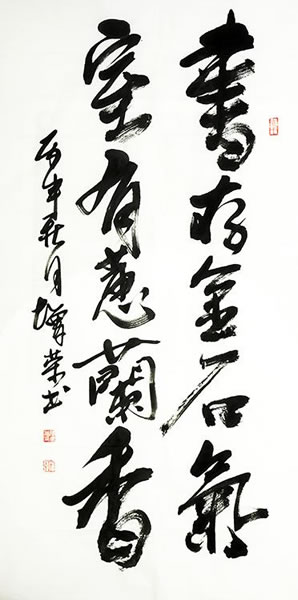 書存金石氣
室有蕙蘭香
丙申秋月增榮书